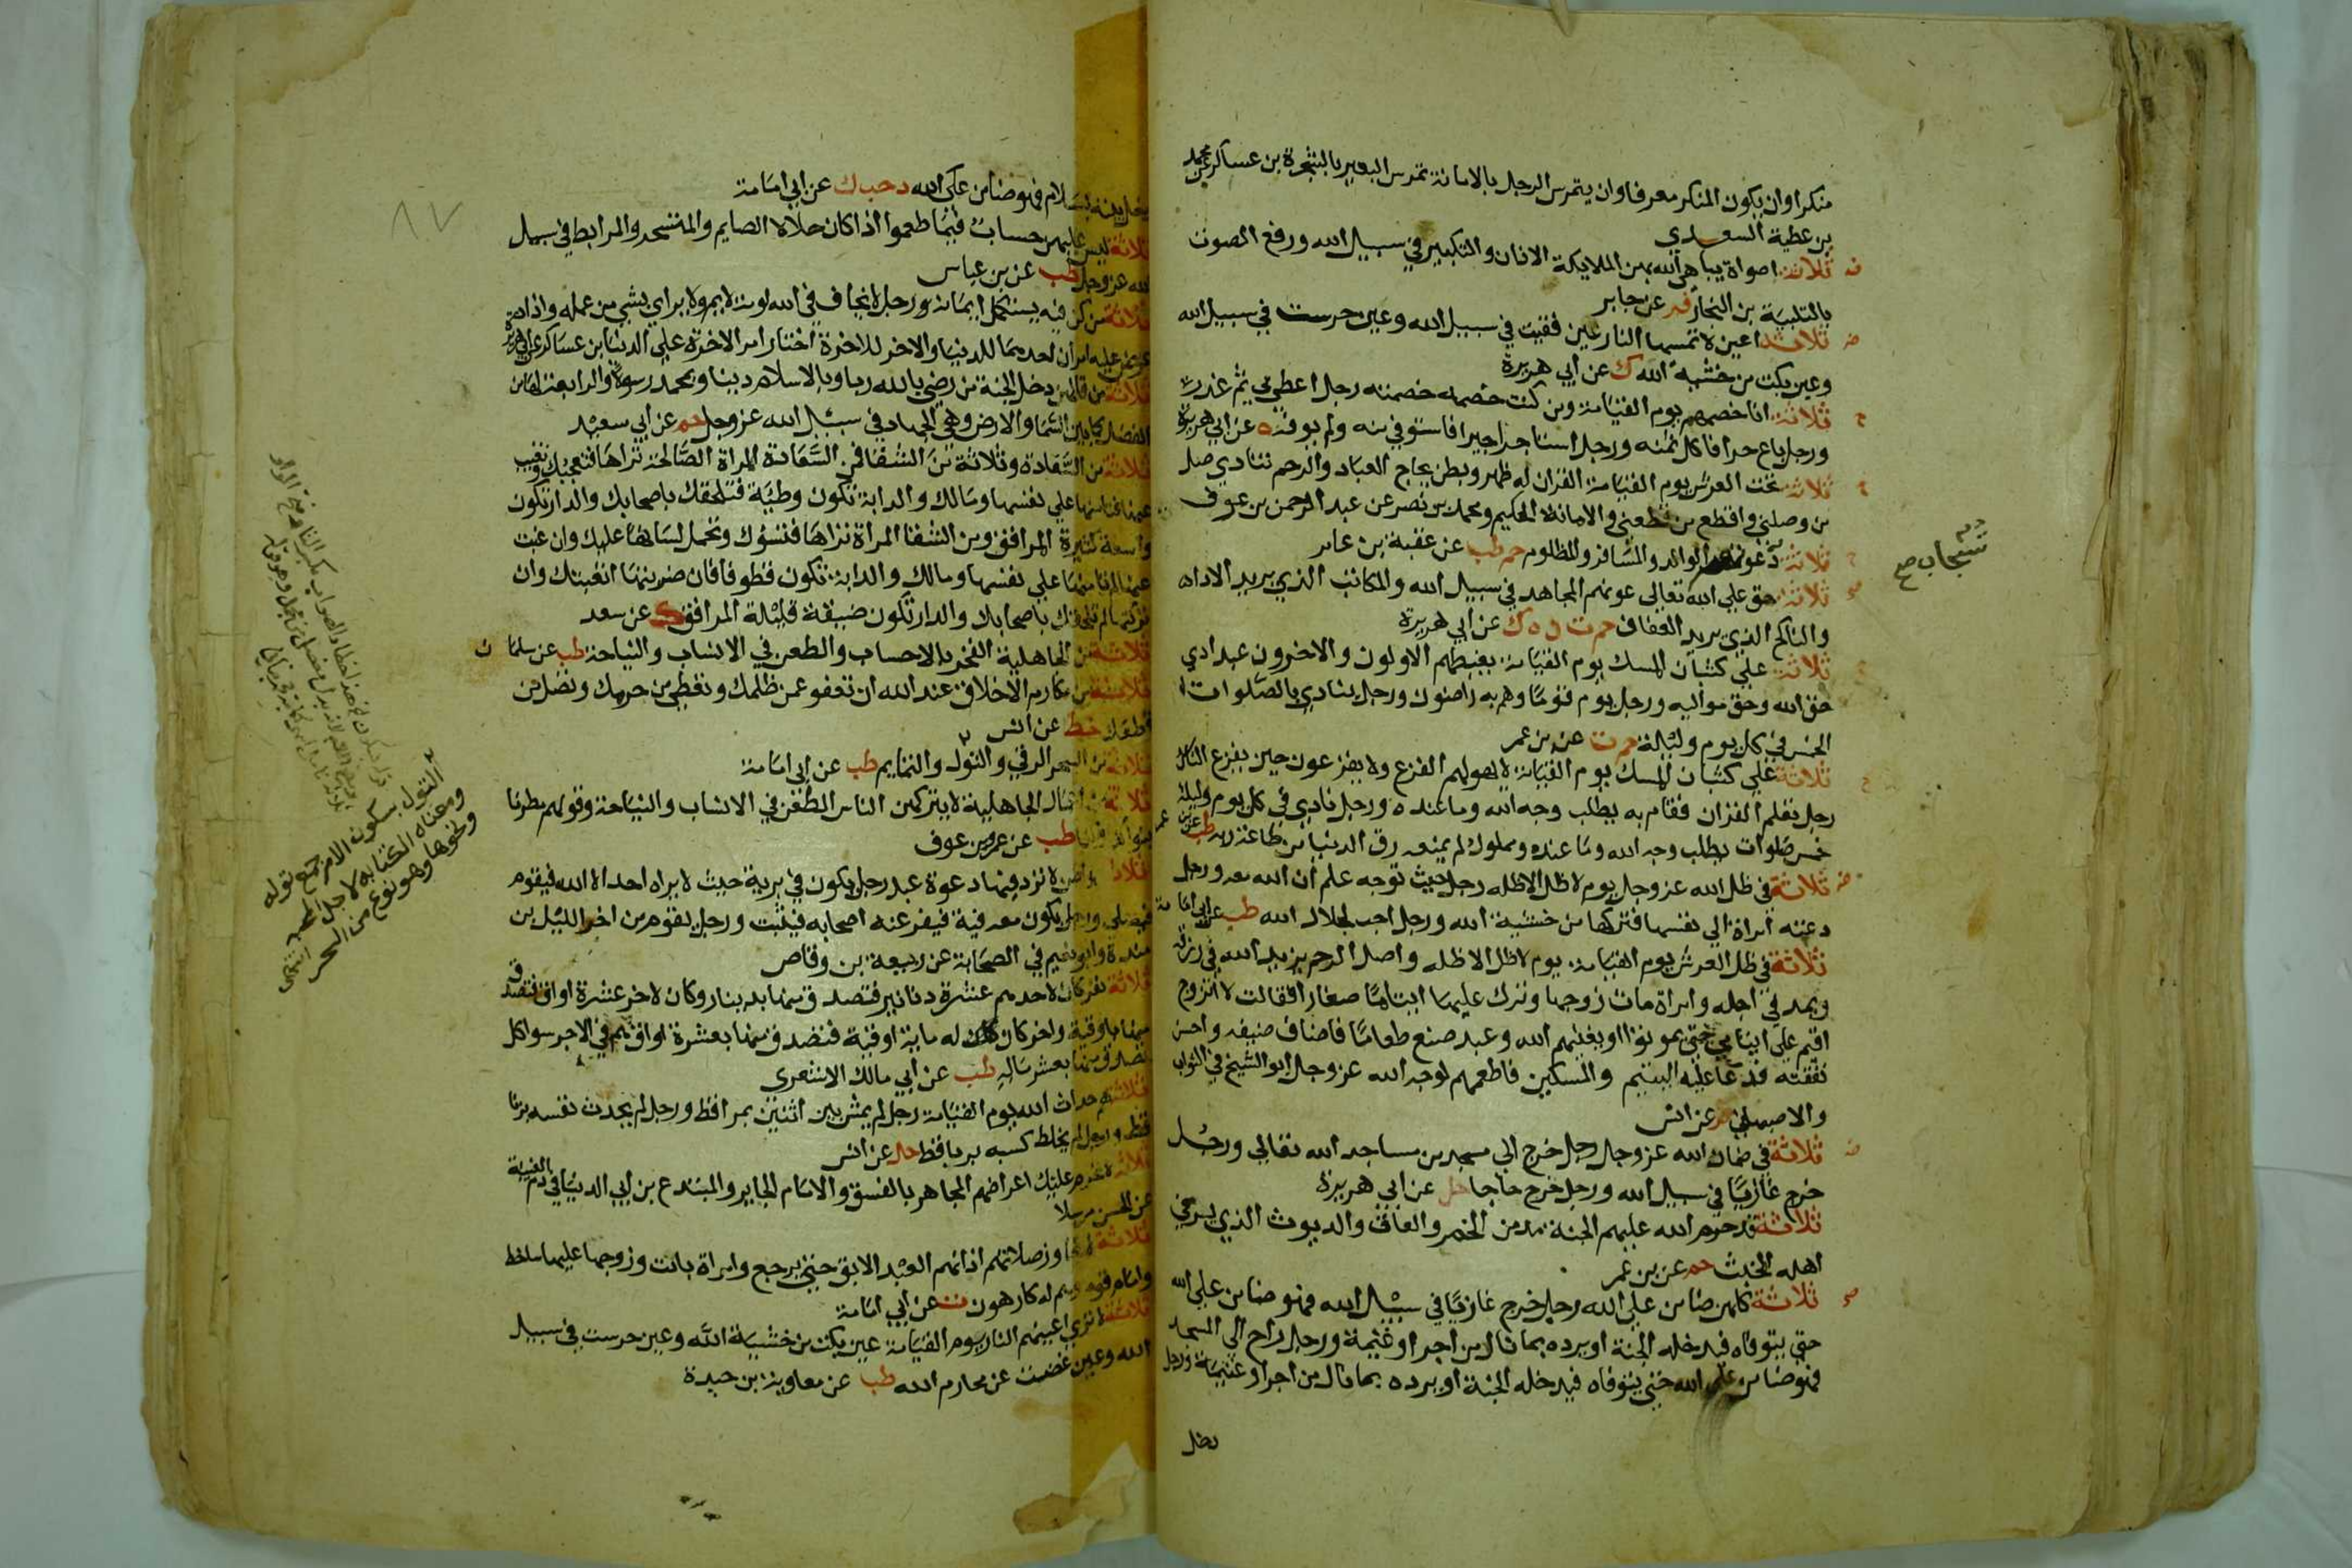 منكرا وان يكون المنكر معرفا وان يتمرس الرجل بالامانة تمرس البعير بالشجرة بن عساكر عن محمد
بن عطية السعدي
ثلاثة اصواة يباهي الله بهن الملايكة الاذان والتكبير في سبيل الله ورفع الصوت
بالتلبية بن النجار فر عن جابر
ثلاثة اعين لا تمسها النار عين فقيت في سبيل الله وعين حرست في سبيل الله
وعين بكت من خشية الله ك عن أبي هريرة
ثلاثة انا خصمهم يوم القيامة ومن كنت خصمه خصمته رجل اعطي بي ثم غدر
ورجل باع حرا فاكل ثمنه ورجل استاجر اجيرا فاستوفي منه ولم يوفه ه عن ابي هريرة
ثلاثة تحت العرش يوم القيامة القران له ظهر وبطن يحاج العباد والرحم تنادي صل
من وصلني واقطع من قطعني والامانة الحكيم ومحمد بن نصر عن عبد الرحمن بن عوف
ثلاثة دعوتهم الوالد والمسافر والمظلوم حم طب عن عقبة بن عامر
تستجاب صح
ثلاثة حق علي الله تعالى عونهم المجاهد في سبيل الله والمكاتب الذي يريد الاداء
والناكح الذي يريد العفاف حم ت ن ه ك عن أبي هريرة
ثلاثة علي كثبان المسك يوم القيامة يغبطهم الاولون والاخرون عبد ادي
حق الله وحق مواليه ورجل يوم قوما وهم به راضون ورجل ينادي بالصلوات
الخمس في كل يوم وليلة حم ت عن بن عمر
ثلاثة علي كثبان المسك يوم القيامة لا يهولهم الفزع ولا يفزعون حين يفزع الناس
رجل تعلم القران فقام به يطلب وجه الله وما عنده ورجل نادي في كل يوم وليلة
خمس صلوات يطلب وجه الله وما عنده ومملوك لم يمنعه رق الدنيا من طاعة ربه طب عن بن عمر
ثلاثة في ظل الله عز وجل يوم لا ظل الا ظله رجل حيث توجه علم ان الله معه ورجل
دعته امراة الي نفسها فتركها من خشية الله ورجل احب لجلال الله طب عن ابي امامة
ثلاثة في ظل العرش يوم القيامة يوم لا ظل الا ظله واصل الرحم يزيد الله في رزقه
ويمد في اجله وامراة مات زوجها وترك عليها ايتاما صغارا فقالت لا اتزوج
اقيم علي ايتامي حتي يموتوا او يغنيهم الله وعبد صنع طعاما فاضاف ضيفه واحسن
نفقته فدعا عليه اليتيم والمسكين فاطعمهم لوجه الله عز وجل ابو الشيخ في الثواب
والاصبهاني فر عن انس
ثلاثة في ضمان الله عز وجل رجل خرج الي مسجد من مساجد الله تعالي ورجل
خرج غازيا في سبيل الله ورجل خرج حاجا حل عن ابي هريرة
ثلاثة قد حرم الله عليهم الجنة مدمن الخمر والعاق والديوث الذي يرعي
اهله الخبث حم عن بن عمر
ثلاثة كلهم ضامن علي الله رجل خرج غازيا في سبيل الله فهو ضامن علي الله
حتي يتوفاه فيدخله الجنة او يرده بما نال من اجر او غنيمة ورجل راح الي المسجد
فهو ضامن علي الله حتي يتوفاه فيدخله الجنة او يرده بما نال من اجر او غنيمة ورجل
٨٧
يدخل بيته بسلام فهو ضامن علي الله د حب ك عن ابي امامة
ثلاثة ليس عليهم حساب فيما طعموا اذا كان حلالا الصايم والمتسحر والمرابط في سبيل
الله عز وجل طب عن بن عباس
ثلاثة من كن فيه يستكمل ايمانه ورجل لا يخاف في الله لومة لايم ولا يراي بشي من عمله واذا
عرض عليه امران احدهما للدنيا والاخر للاخرة اختار امر الاخرة علي الدنيا بن عساكر عن ابي هريرة
ثلاثة من قالهن دخل الجنة من رضي بالله ربا وبالاسلام دينا وبمحمد رسولا والرابعة لها من
الفضل كما بين السما والارض وهي الجهاد في سبيل الله عز وجل حم عن ابي سعيد
ثلاثة من السعادة وثلاثة من الشقا فمن السعادة المراة الصالحة تراها فتعجبك وتغيب
عنها فتامنها علي نفسها ومالك والدابة تكون وطية فتلحقك باصحابك والدار تكون
واسعة كثيرة المرافق ومن الشقا المراة تراها فتسوك وتحمل لسانها عليك وان غبت
عنها لم تامنها علي نفسها ومالك والدابة تكون قطوفا فان ضربتها اتعبتك وان
تركتها لم تلحقك باصحابك والدار تكون ضيقة قليلة المرافق ك عن سعد
ثلاثة من الجاهلية الفخر بالاحساب والطعن في الانساب والنياحة طب عن سلمان
ثلاثة من مكارم الاخلاق عند الله ان تعفو عمن ظلمك وتعطي من حرمك وتصل من
قطعك خط عن انس
ثلاثة من السحر الرقي والتول والتمايم طب عن ابي امامة
ثلاثة من اعمال الجاهلية لا يتركهن الناس الطعن في الانساب والنياحة وقولهم مطرنا
طب عن عمرو بن عوف
ثلاثة مواطن لا ترد فيها دعوة عبد رجل يكون في برية حيث لا يراه احد الا الله فيقوم
فيصلي ورجل يكون معه فية فيفر عنه اصحابه فيثبت ورجل يقوم من اخر الليل بن
مندة وابو نعيم في الصحابة عن ربيعة بن وقاص
ثلاثة نفر كان لاحدهم عشرة دنانير فتصدق منها بدينار وكان لاخر عشرة اواق فتصدق
منها باوقية واخر كان له ماية اوقية فتصدق منها بعشرة اواق هم في الاجر سوا كل
تصدق منها بعشر ماله طب عن أبي مالك الاشعري
ثلاثة هم حداث الله يوم القيامة رجل لم يمش بين اثنين بمرا قط ورجل لم يحدث نفسه بزنا
قط ورجل لم يخلط كسبه بربا قط حل عن انس
ثلاثة لا تحرم عليك اعراضهم المجاهر بالفسق والامام الجاير والمبتدع بن ابي الدنيا في ذم الغيبة
عن الحسن مرسلا
ثلاثة لا تجاوز صلاتهم اذانهم العبد الابق حتي يرجع وامراة باتت وزوجها عليها ساخط
وامام قوم وهم له كارهون ت عن أبي امامة
ثلاثة لا تري اعينهم النار يوم القيامة عين بكت من خشية الله وعين حرست في سبيل
الله وعين غضت عن محارم الله طب عن معاوية بن حيدة
التول بسكون الامر جمع توله
ومعناه الكتابة لاجل
ونحوها وهو نوع من السحر
انتهى